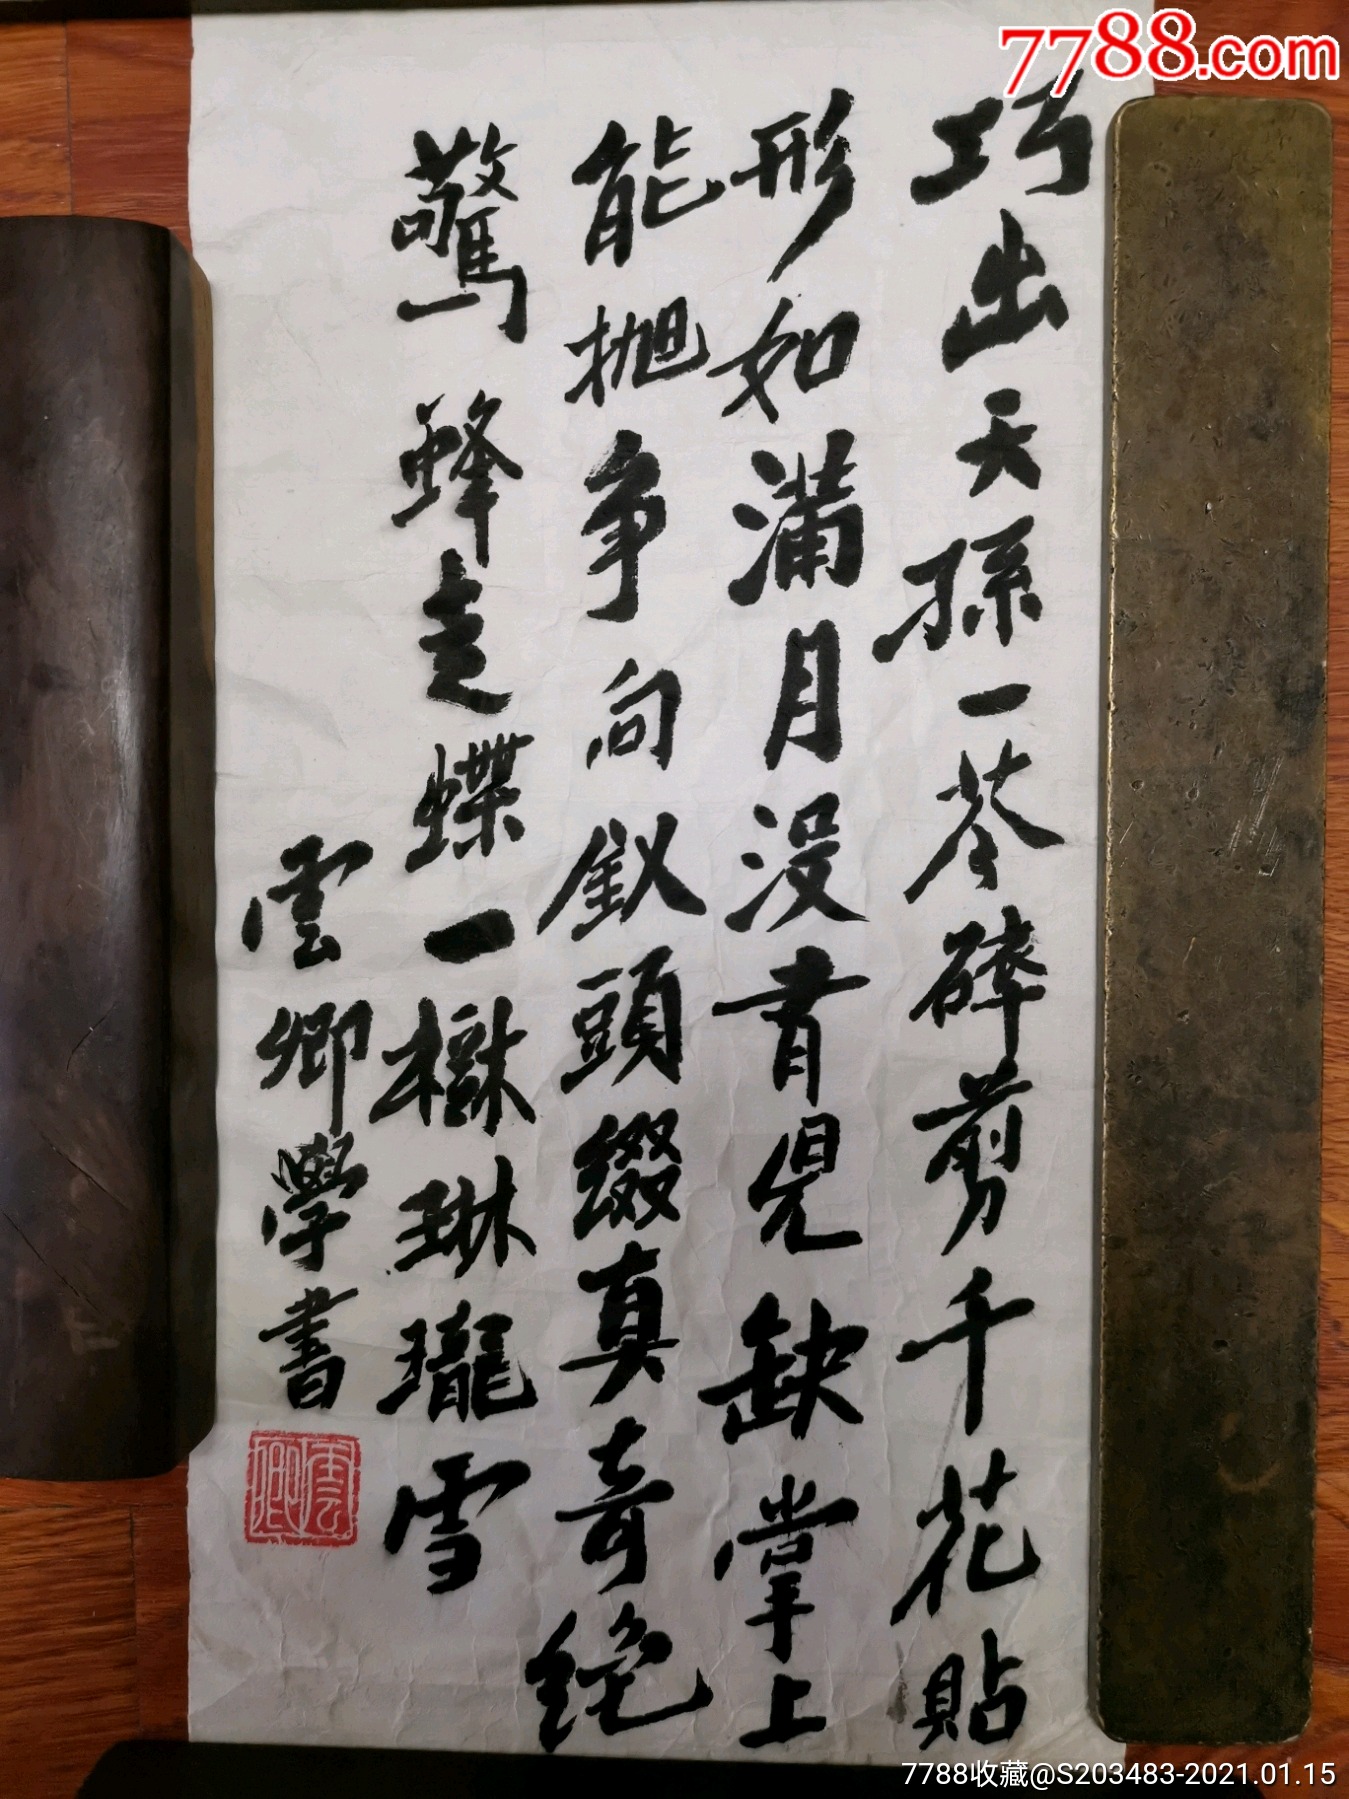 7788.com
巧出天孫一苓碎剪千花貼
形如滿月没肯児缺掌上
能抛争向釵頭綴真奇絶
驚蜂走蝶一樹琳瓏雪
雲卿學書
雲卿
7788收藏@S203483-2021.01.15